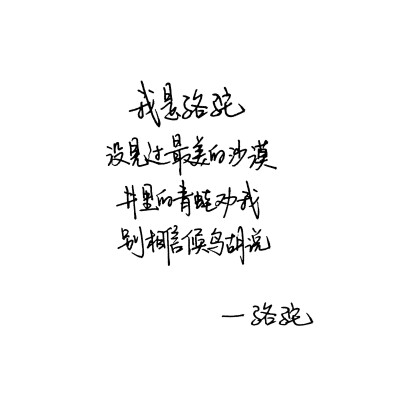 我是骆驼
没见过最美的沙漠
井里的青蛙劝我
别相信候鸟胡说
一骆驼